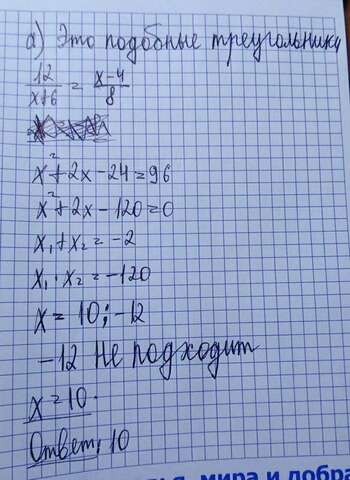 а) Это подобные треугольники
12/x+6 = x-4/8
x²+2x-24=96
x²+2x-120=0
x₁+x₂=-2
x₁·x₂=-120
x=10;-12
-12 Не подходит
x=10.
Ответ: 10
мира и добра